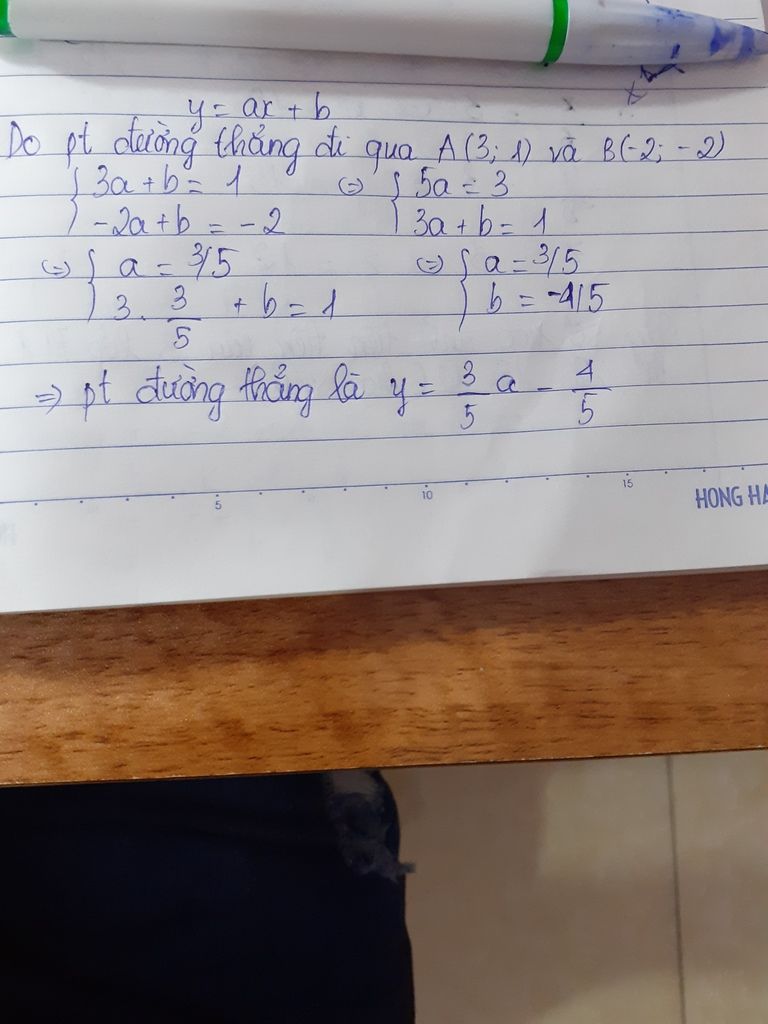 y = ax + b
Do pt đường thẳng đi qua A(3; 1) và B(-2; -2)
{ 3a + b = 1 (=) { 5a = 3
{ -2a + b = -2 { 3a + b = 1
(=) { a = 3/5 (=) { a = 3/5
{ 3. 3/5 + b = 1 { b = -4/5
=> pt đường thẳng là y = 3/5 a - 4/5
5 10 15
HONG HA